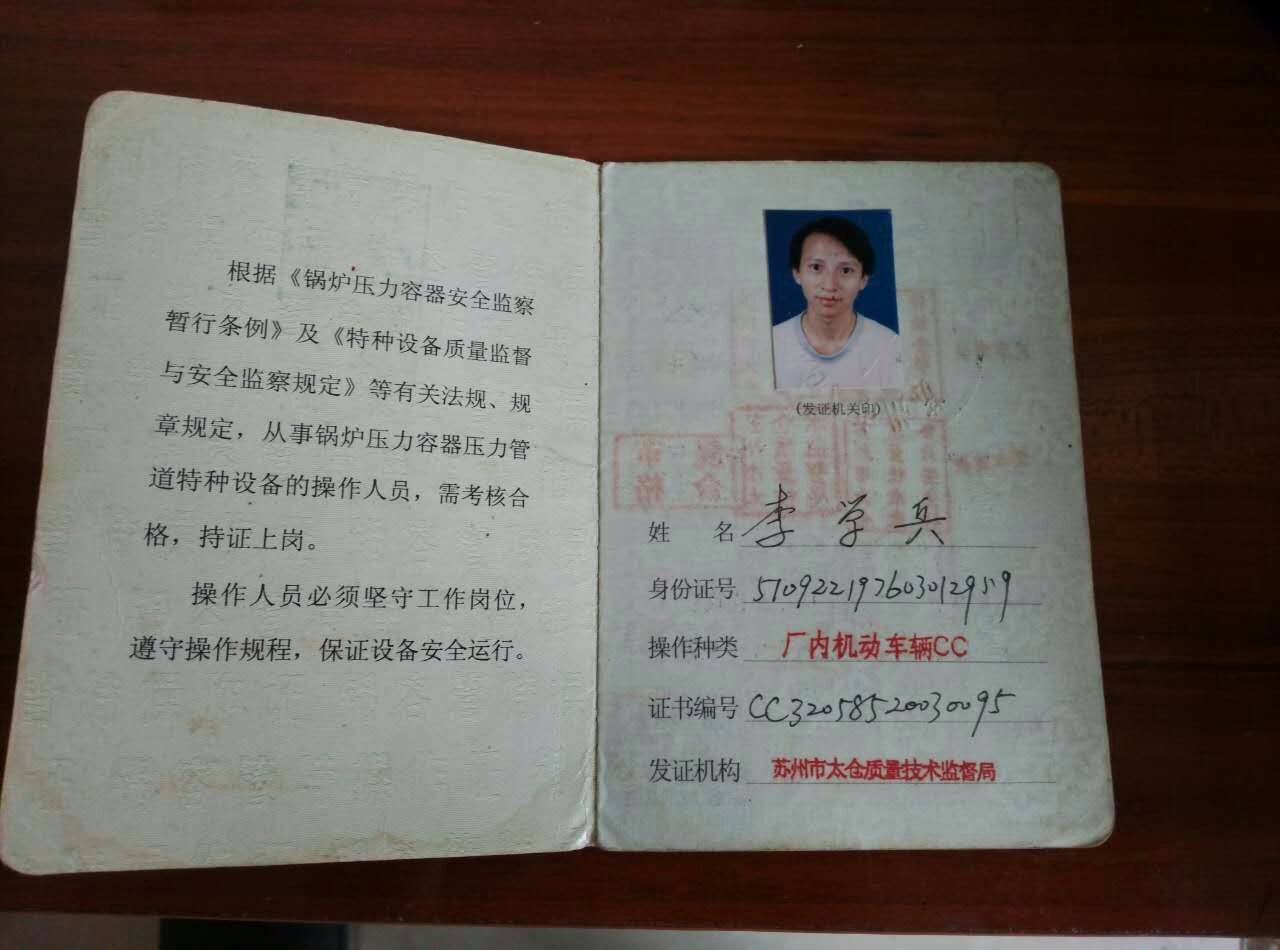 根据《锅炉压力容器安全监察
暂行条例》及《特种设备质量监督
与安全监察规定》等有关法规、规
章规定，从事锅炉压力容器压力管
道特种设备的操作人员，需考核合
格，持证上岗。
操作人员必须坚守工作岗位，
遵守操作规程，保证设备安全运行。
(发证机关印)
姓 名 李学兵
身份证号 510922197603012959
操作种类 厂内机动车辆CC
证书编号 CC32058520030095
发证机构 苏州市太仓质量技术监督局